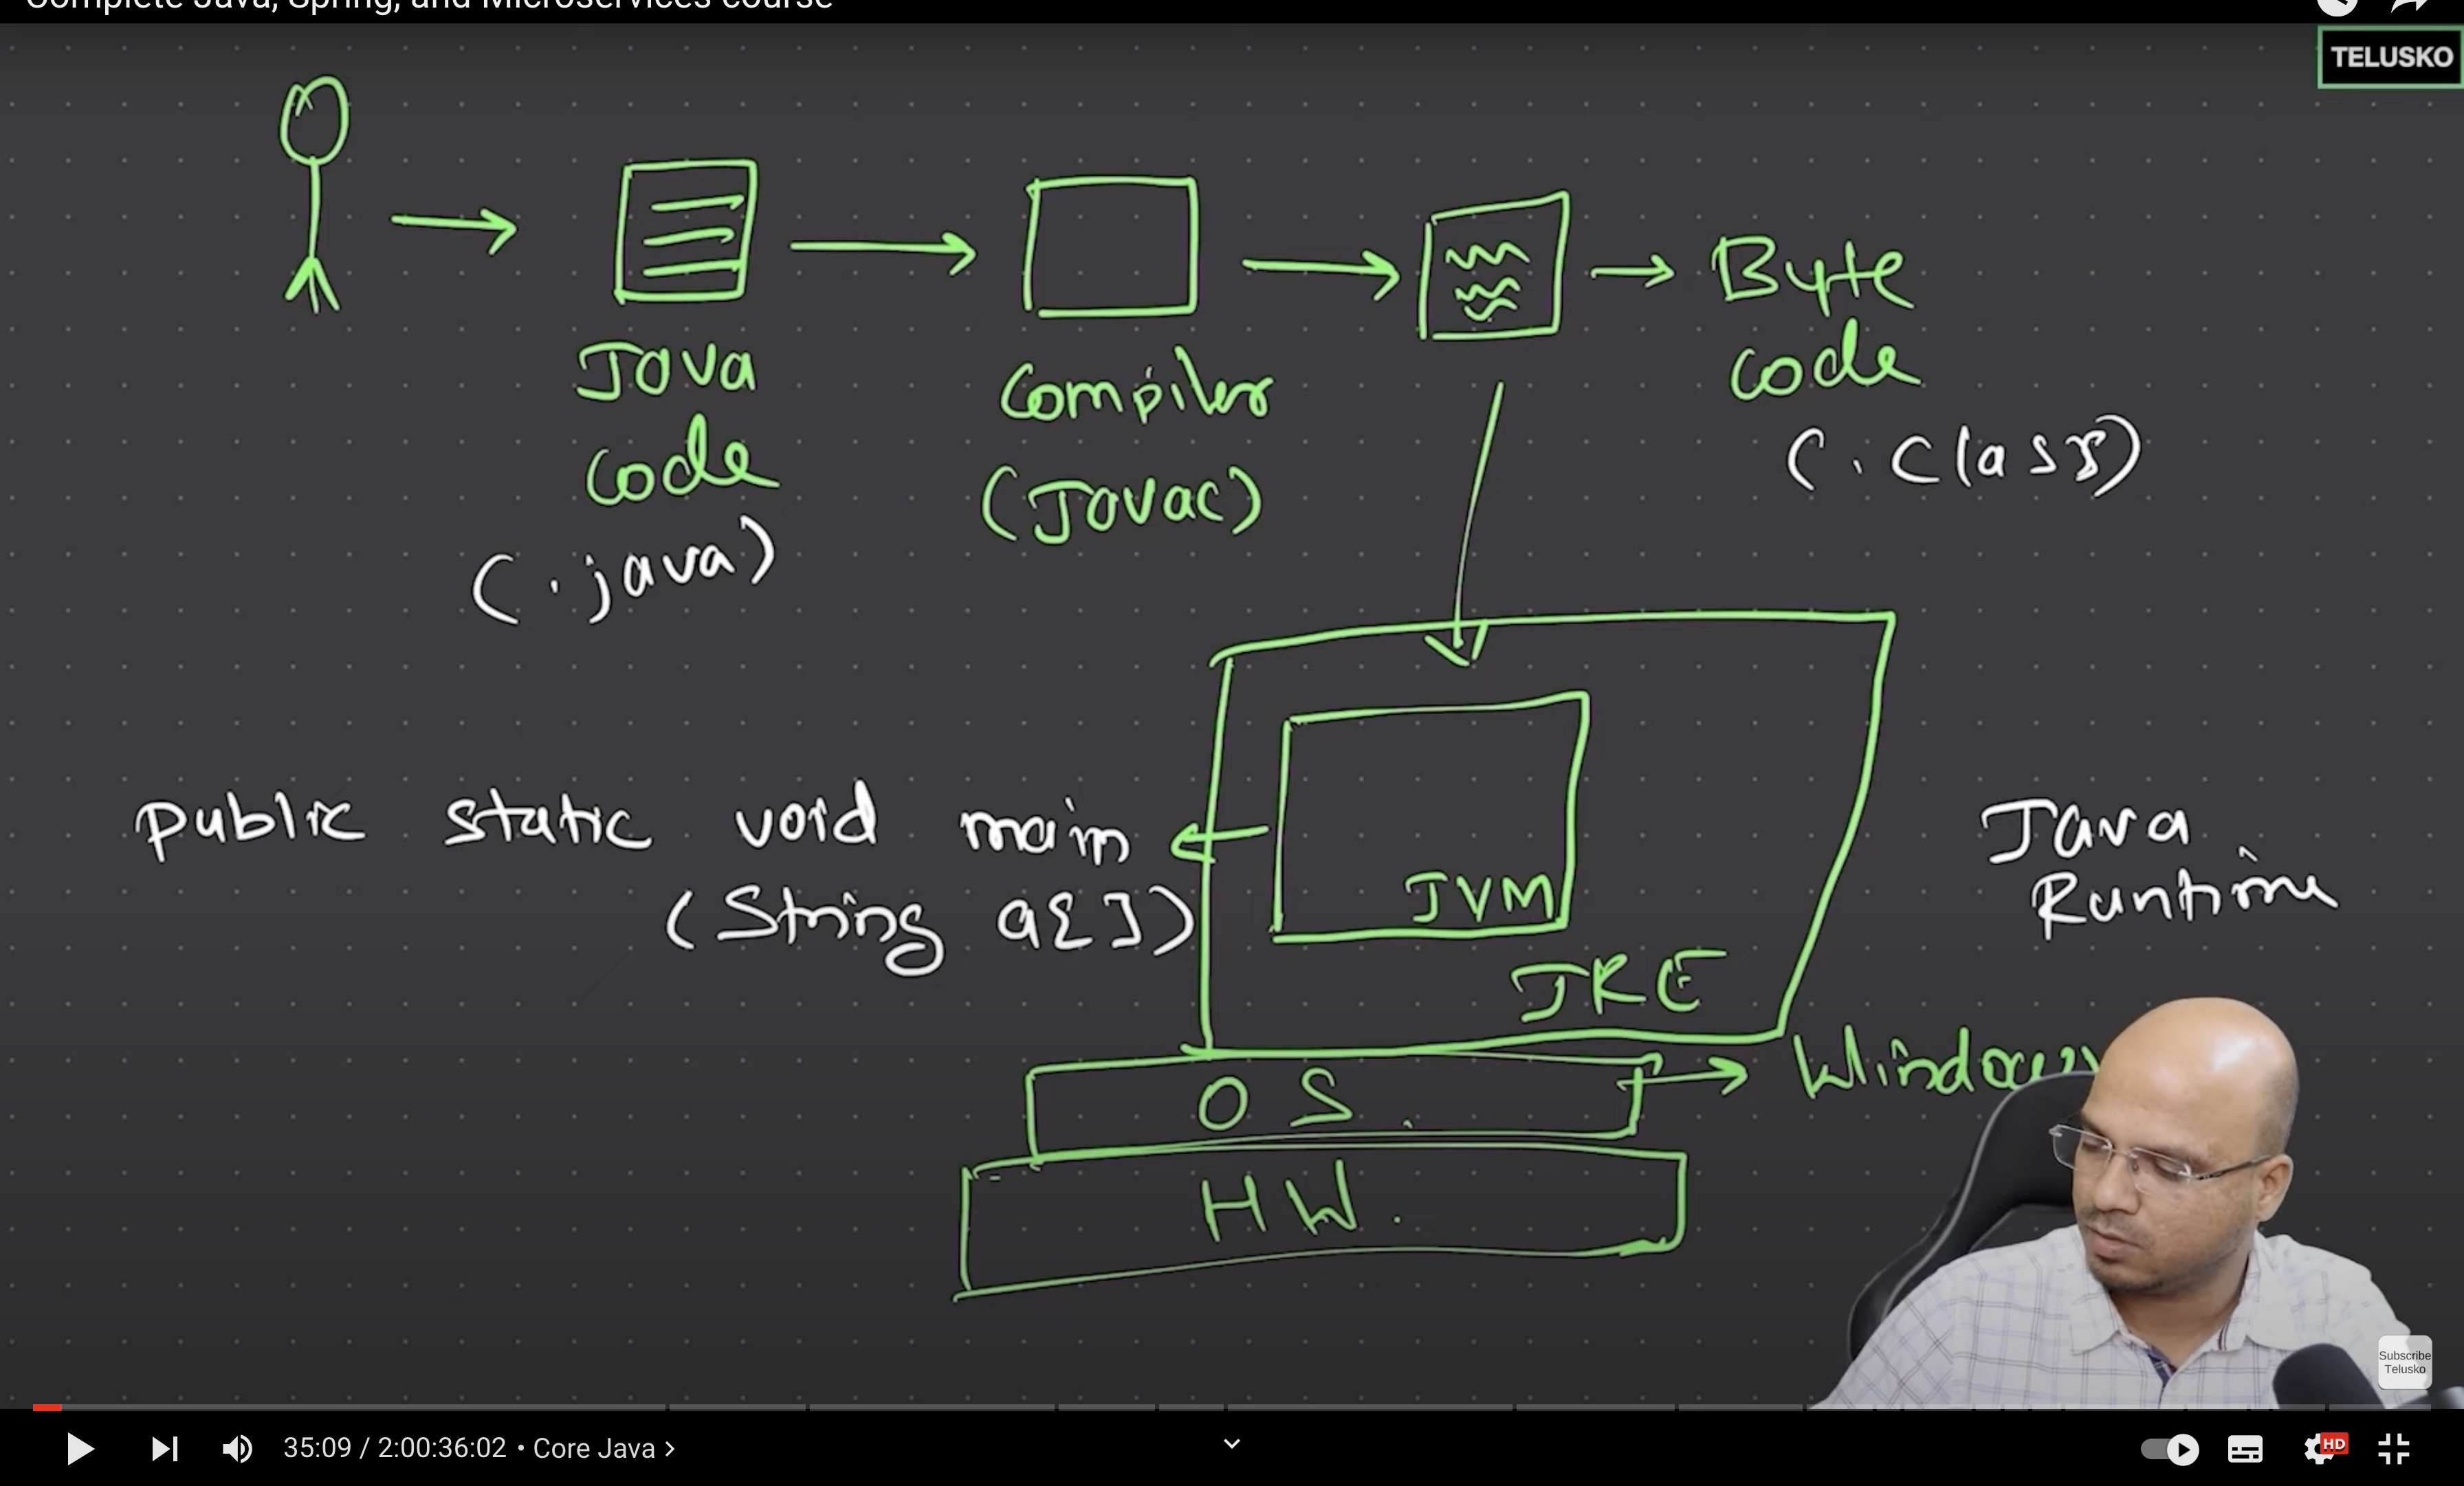 Complete Java, Spring, and Microservices course
TELUSKO
Java
Code
(.java)
Compiler
(Javac)
Byte
Code
(.Class)
public static void main
(String a[])
JVM
JRE
Java
Runtime
OS.
Windows
HW.
Subscribe
Telusko
35:09 / 2:00:36:02 • Core Java >
HD